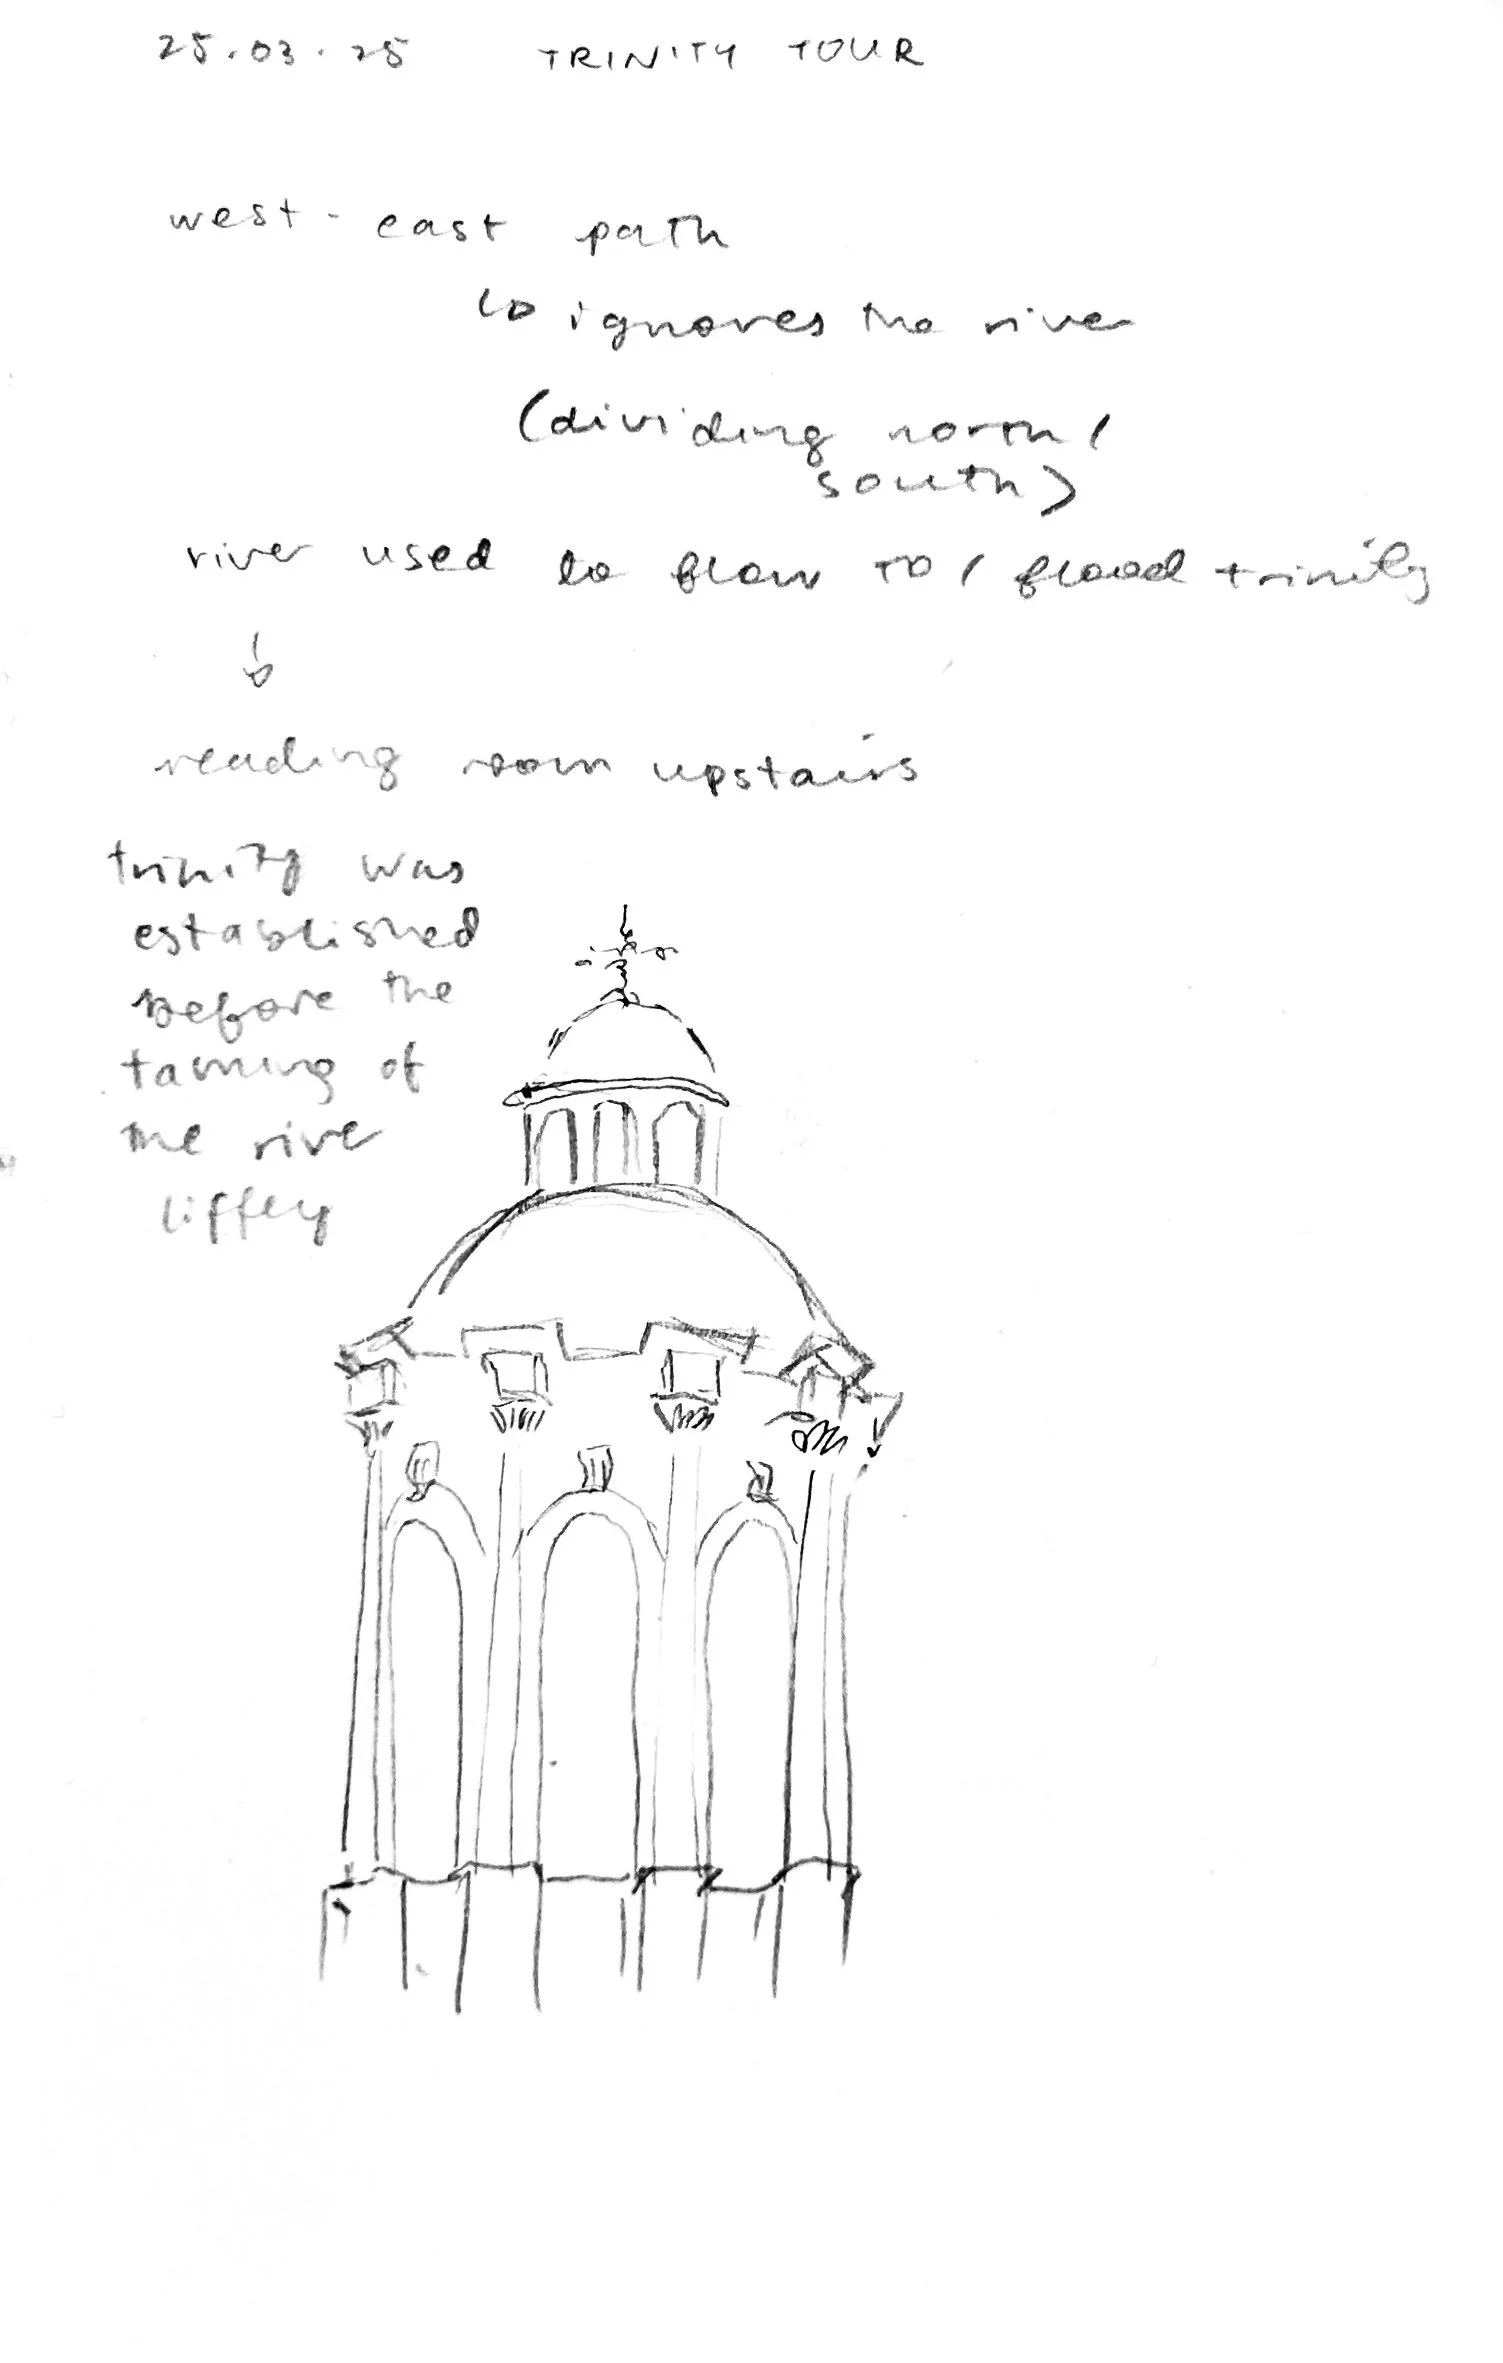 25.03.25 TRINITY TOUR
west-east path
↳ ignores the river
(dividing north/
south)
river used to flow TO/ flood trinity
↓
reading room upstairs
trinity was
established
before the
taming of
the river
liffey